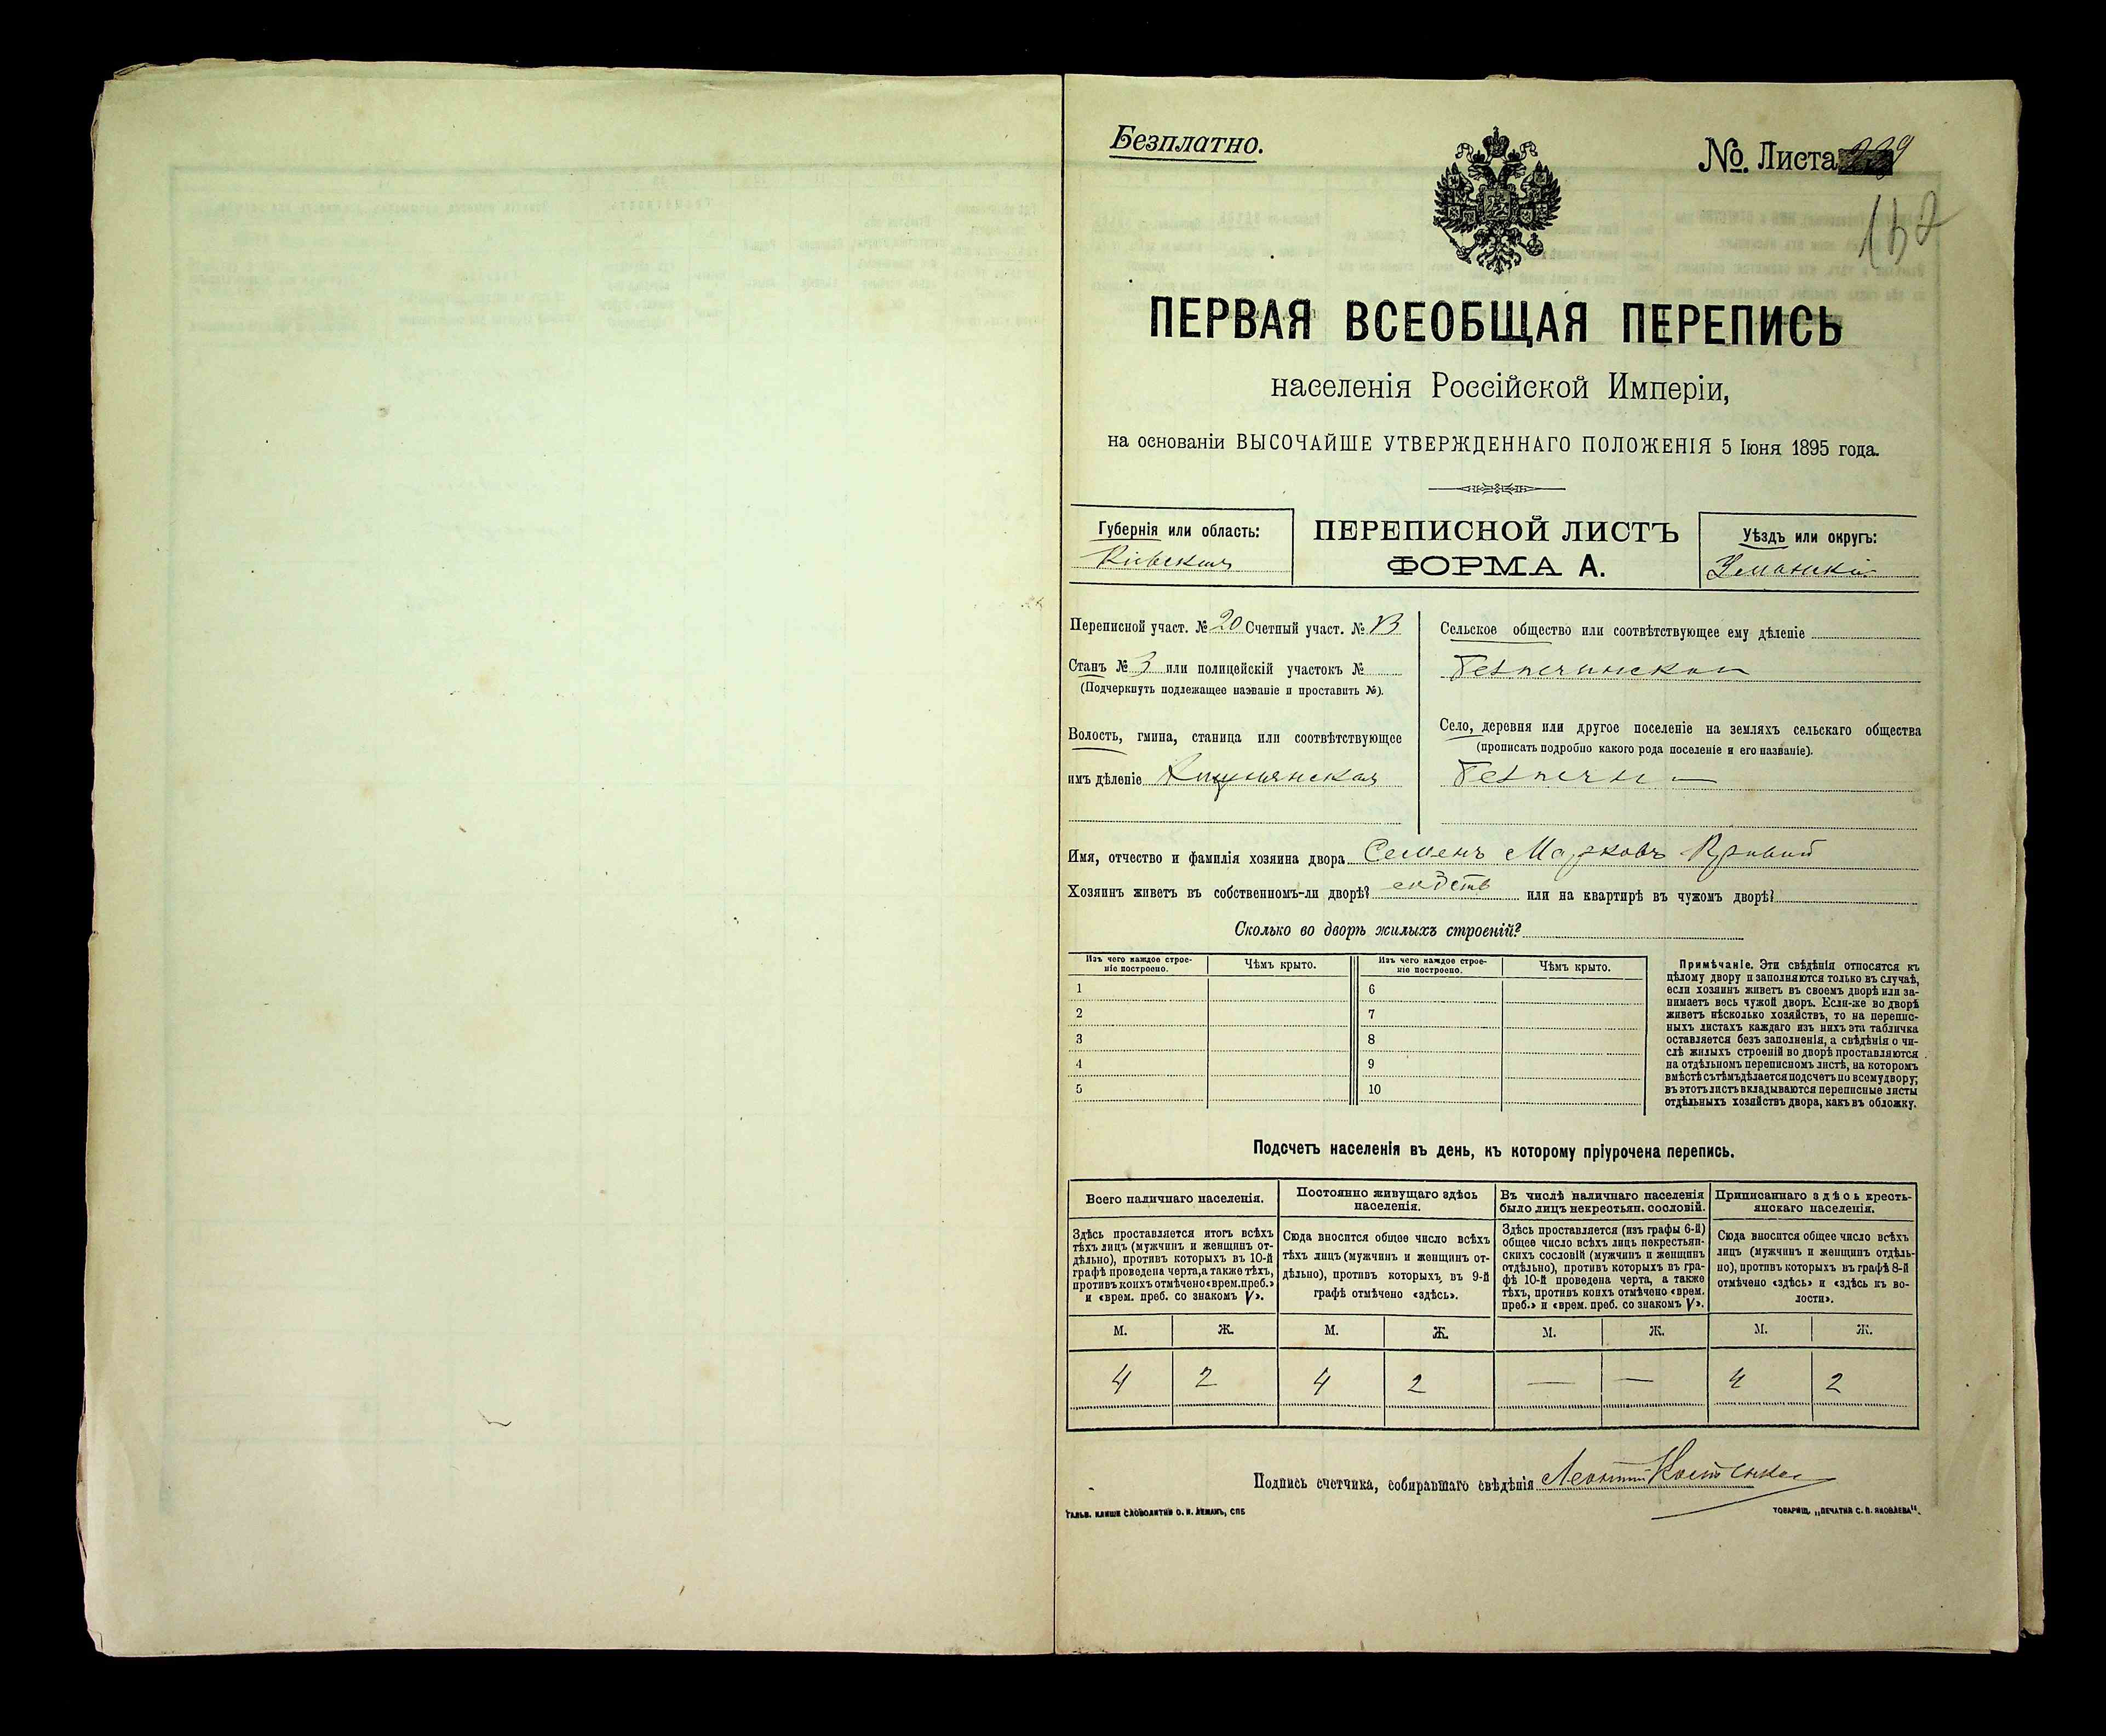 Безплатно.
№. Листа 229
ПЕРВАЯ ВСЕОБЩАЯ ПЕРЕПИСЬ
населенія Россійской Имперіи,
на основаніи ВЫСОЧАЙШЕ УТВЕРЖДЕННАГО ПОЛОЖЕНІЯ 5 Іюня 1895 года.
Губернія или область:
Кіевская
ПЕРЕПИСНОЙ ЛИСТЪ
ФОРМА А.
Уѣздъ или округъ:
Уманскій
Переписной участ. № 20 Счетный участ. №
Станъ № 3 или полицейскій участокъ №
(Подчеркнуть подлежащее названіе и проставить №).
Волость, гмина, станица или соотвѣтствующее
имъ дѣленіе
Сельское общество или соотвѣтствующее ему дѣленіе
Безпечинское
Село, деревня или другое поселеніе на земляхъ сельскаго общества
(прописать подробно какого рода поселеніе и его названіе).
Имя, отчество и фамилія хозяина двора Семенъ Марковъ Кривий
Хозяинъ живетъ въ собственномъ-ли дворѣ? или на квартирѣ въ чужомъ дворѣ?
Сколько во дворѣ жилыхъ строеній?
Изъ чего каждое строе-
ніе построено.
Чѣмъ крыто.
Изъ чего каждое строе-
ніе построено.
Чѣмъ крыто.
1 6
2 7
3 8
4 9
5 10
Примѣчаніе. Эти свѣдѣнія относятся къ
цѣлому двору и заполняются только въ случаѣ,
если хозяинъ живетъ въ своемъ дворѣ или за-
нимаетъ весь чужой дворъ. Если-же во дворѣ
живетъ нѣсколько хозяйствъ, то на перепис-
ныхъ листахъ каждаго изъ нихъ эта табличка
оставляется безъ заполненія, а свѣдѣнія о чи-
слѣ жилыхъ строеній во дворѣ проставляются
на отдѣльномъ переписномъ листѣ, на которомъ
вмѣстѣ съ тѣмъ дѣлается подсчетъ по всему двору;
въ этотъ листъ вкладываются переписные листы
отдѣльныхъ хозяйствъ двора, какъ въ обложку.
Подсчетъ населенія въ день, къ которому пріурочена перепись.
Всего наличнаго населенія.
Здѣсь проставляется итогъ всѣхъ
тѣхъ лицъ (мужчинъ и женщинъ от-
дѣльно), противъ которыхъ въ 10-й
графѣ проведена черта, а также тѣхъ,
противъ коихъ отмѣчено «врем. преб.»
и «врем. преб. со знакомъ V».
Постоянно живущаго здѣсь
населенія.
Сюда вносится общее число всѣхъ
тѣхъ лицъ (мужчинъ и женщинъ от-
дѣльно), противъ которыхъ въ 9-й
графѣ отмѣчено «здѣсь».
Въ числѣ наличнаго населенія
было лицъ некрестьян. сословій.
Здѣсь проставляется (изъ графы 6-й)
общее число всѣхъ лицъ некрестьян-
скихъ сословій (мужчинъ и женщинъ
отдѣльно), противъ которыхъ въ гра-
фѣ 10-й проведена черта, а также
тѣхъ, противъ коихъ отмѣчено «врем.
преб.» и «врем. преб. со знакомъ V».
Приписаннаго здѣсь кресть-
янскаго населенія.
Сюда вносится общее число всѣхъ
лицъ (мужчинъ и женщинъ отдѣль-
но), противъ которыхъ въ графѣ 8-й
отмѣчено «здѣсь» и «здѣсь къ во-
лости».
М. Ж. М. Ж. М. Ж. М. Ж.
4 2 4 2 — — 4 2
Подпись счетчика, собиравшаго свѣдѣнія Леонтий
ГАЛЬВ. КЛИШЕ СЛОВОЛИТНИ О. И. ЛЕМАНЪ, СПБ
ТОВАРИЩ. „ПЕЧАТНЯ С. П. ЯКОВЛЕВА".